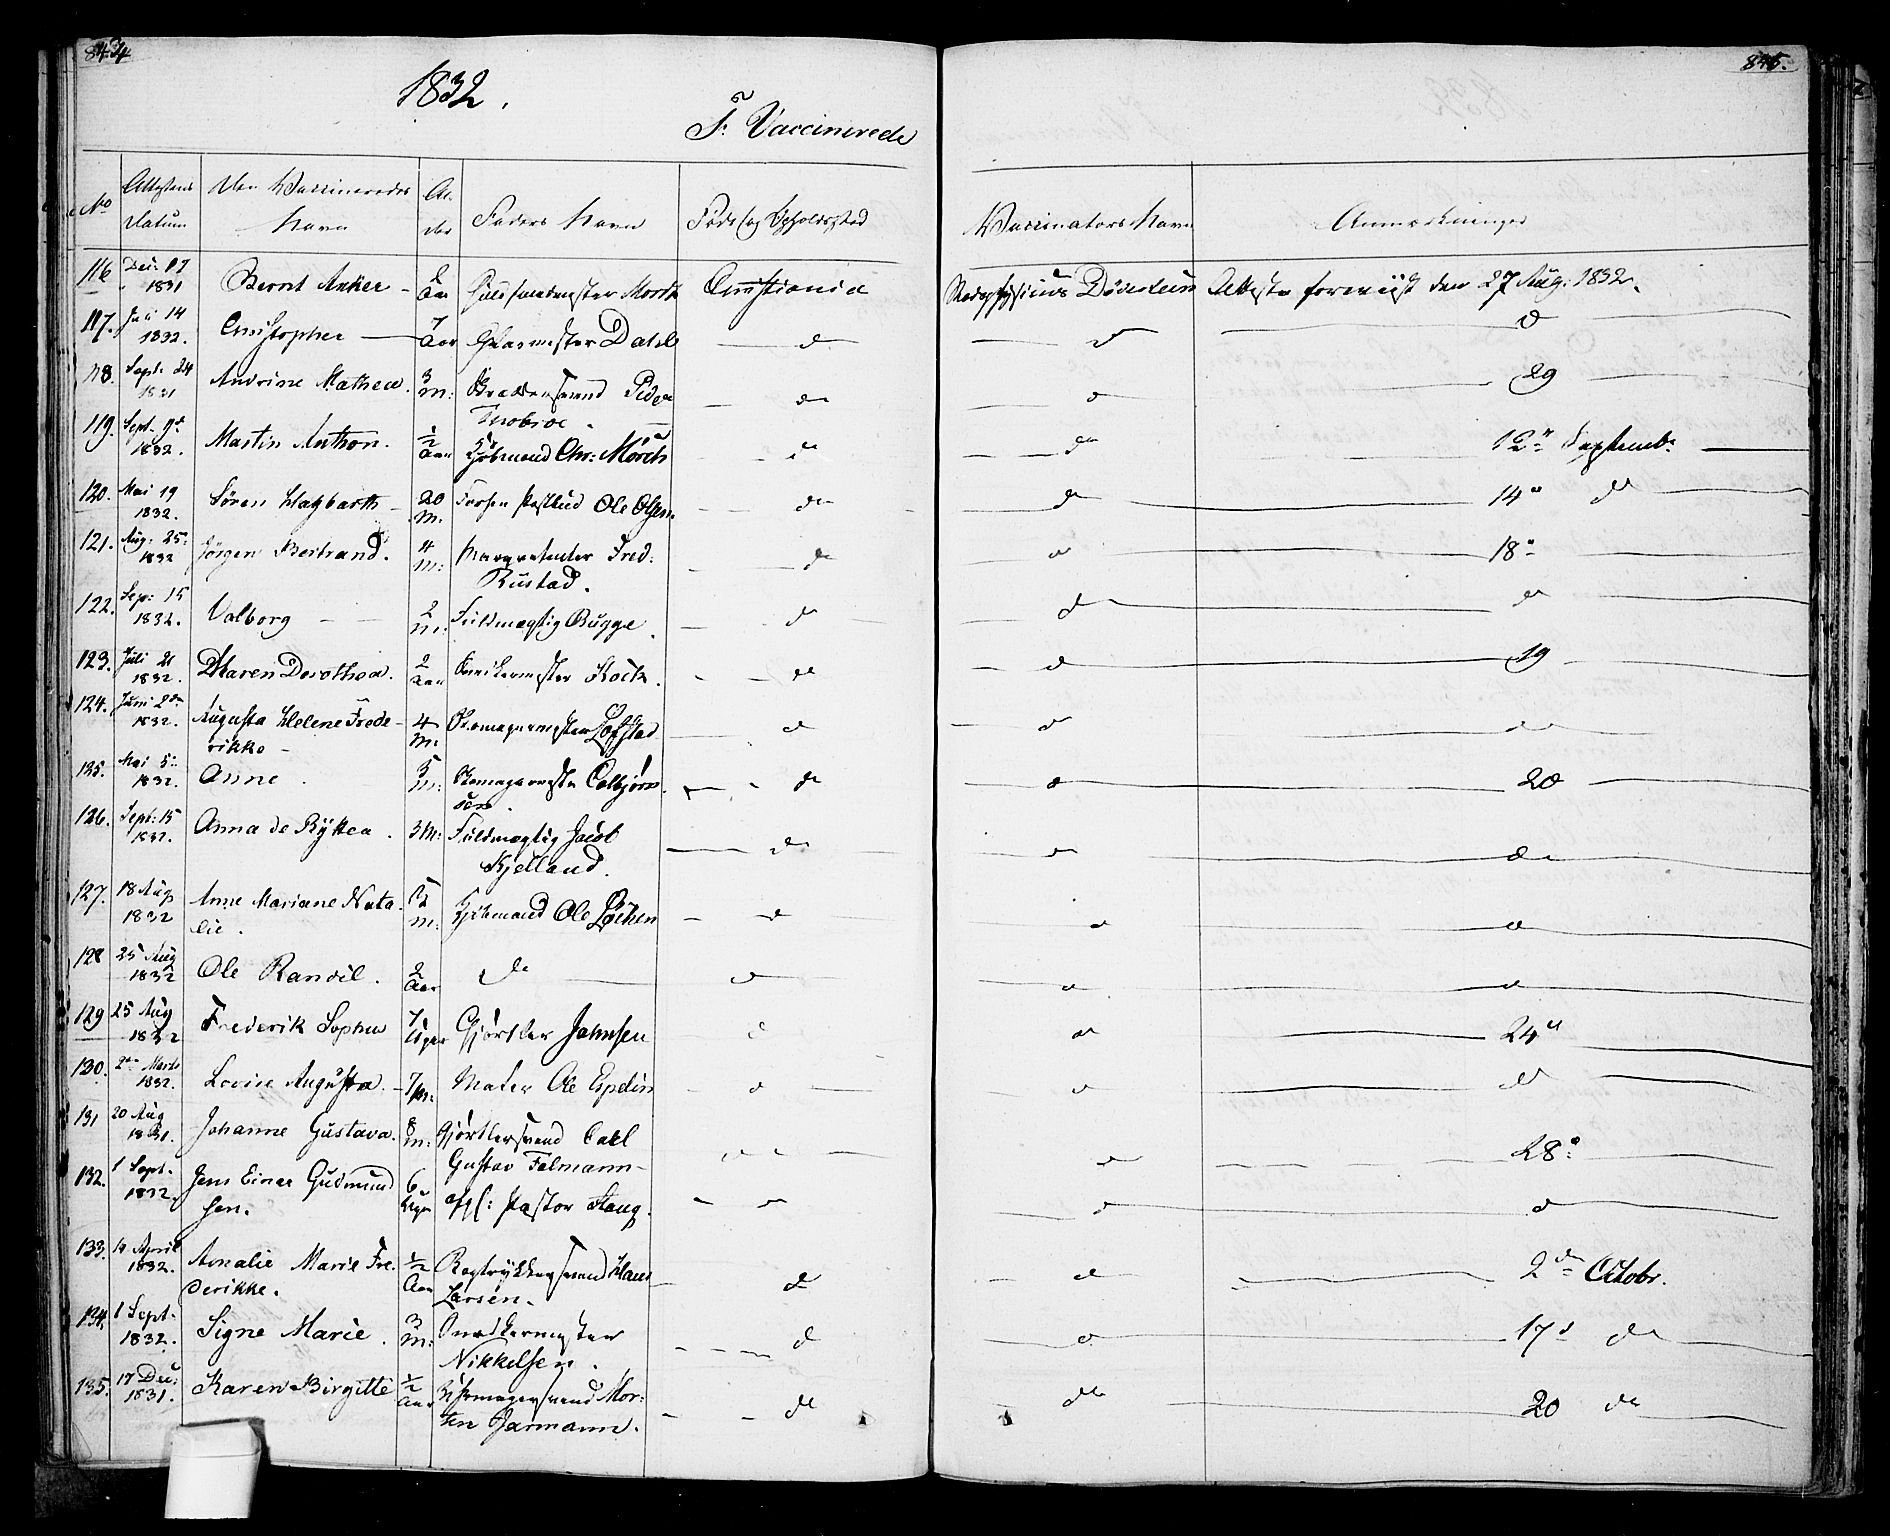 834
845.
1832.
F: Vaccinerede
No | Attestens Datum | Den Vaccineredes Navn | Al- der | Faders Navn | Føde- og Opholdssted | Vaccinators Navn | Anmærkninger
116 | Dec: 17 1831 | Bernt Anker | Aar | Guldsmedmester | Christiania | Stadsphysicus Döderlein | Attesten foreviist den 27 Aug: 1832.
117. | Juli 14 1832. | Christopher | 7 Aar | Glarmester Dahl | d | d | d
118. | Sept. 24 1831 | Andrine Mathea. | 3 M: | Peder | do | d | 29
119. | Sept. 9d 1832. | Martin Anthon. | ½ Aar | Kjøbmand Chr: Mörch | do | do | 12te Septemb.
120. | Mai 19 1832. | Søren Hagbarth | 20 M. | Ole Olsen. | do | do | 14de do
121. | Aug: 25 1832 | Jørgen Bertrand. | 4 M: | Marqvetenter Fred: Rustad. | do | d | 18
122. | Sep: 15 1832. | Valborg | 2 M: | Fuldmægtig Bugge. | do | d | do
123. | Juli 21 1832. | Maren Dorothea. | 2 Aar | Koch. | do | d | 19
124. | Juni 2den 1832. | Augusta Helene Frede- rikke | 4 M: | Skomagermester Løfstad | d | d | do
125. | Mai 5 1832. | Anne. | 5 M: | Skomagermester Colbjørn- sen. | do | d | 20
126. | Sept: 15 1832. | Anna de Rytter. | 3 M: | Fuldmægtig Jacob Kjelland. | do | do | do
127. | 18 Aug 1832 | Anne Mariane Nata- lie. | 5 M: | Kjøbmand Ole Løchen | d | d | d
128 | 25 Aug 1832 | Ole Randil. | 2 Aar | do | d | d | d
129 | 25 Aug 1832 | Frederik Sophus | 7 Uger | Gjørtler Johnsen | d | do | 24d
130. | 2den Marts 1832. | Lovise Augusta. | 7 M: | Maler Ole Espelin | d | d | do
131 | 20 Aug 1831. | Johanne Gustava. | 8 M: | Gjørtlersvend Carl Gustav Falmann | do | do | 28
132. | 1 Sept. 1832. | Jens Einar Gudmund sen. | 6 Uger | Pastor Stang. | d | d | d
133. | 14 April 1832. | Amalie Marie Fre- derikke. | ½ Aar | Bogtrykkersvend Hans Larsen. | d | d | 2den Octobr.
134. | 1 Sept. 1832. | Signe Marie. | 3 M: | Snedkermester Nikkelsen. | d | d | 17d do
135. | 17 Dec: 1831. | Karen Birgitte | ½ Aar | Mor- ten Garmann. | do | do | 20 do